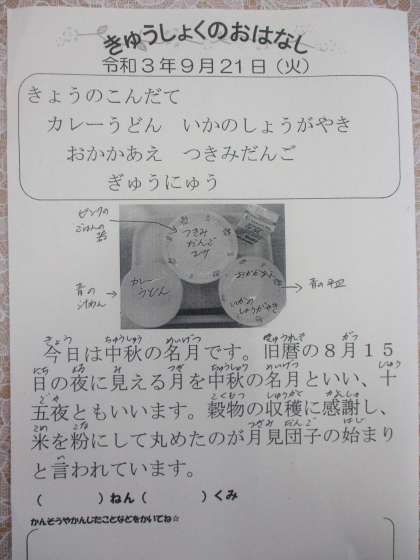 きゅうしょくのおはなし
令和3年9月21日(火)
きょうのこんだて
カレーうどん いかのしょうがやき
おかかあえ つきみだんご
ぎゅうにゅう
ピンクの
ごはんの
器
つきみ
だんご
2コ
カレー
うどん
おかかあえ
いかの
しょうがやき
青の
汁わん
青の平皿
今日は中秋の名月です。旧暦の8月15
日の夜に見える月を中秋の名月といい、十
五夜ともいいます。穀物の収穫に感謝し、
米を粉にして丸めたのが月見団子の始まり
と言われています。
( )ねん( )くみ
かんそうやかんじたことなどをかいてね☆